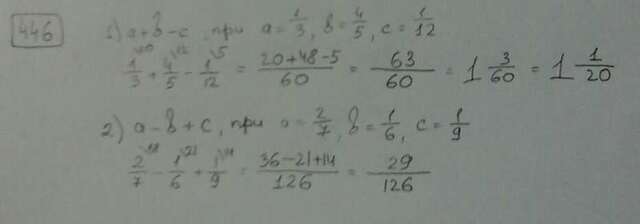 446
1) a+b-c, при a=1/3, b=4/5, c=1/12
1/3 + 4/5 - 1/12 = (20+48-5)/60 = 63/60 = 1 3/60 = 1 1/20
2) a-b+c, при a=2/7, b=1/6, c=1/9
2/7 - 1/6 + 1/9 = (36-21+14)/126 = 29/126